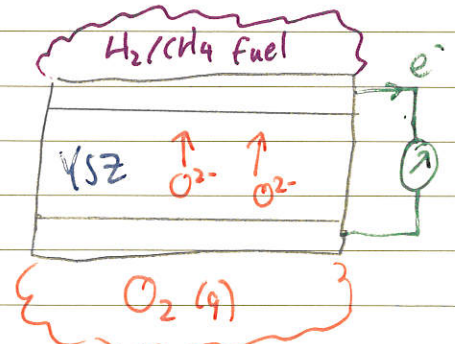 H₂/CH₄ Fuel
e⁻
YSZ
O²⁻ O²⁻
O₂ (g)